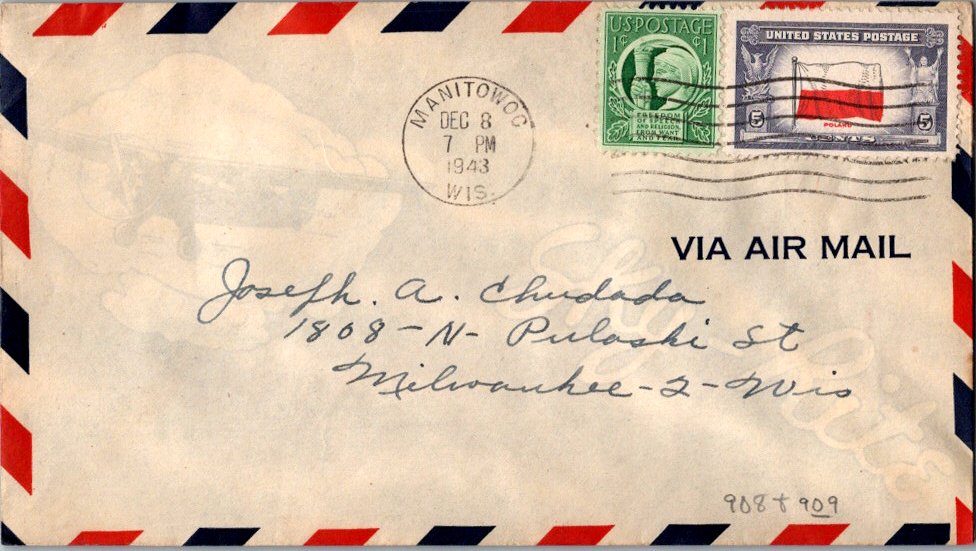 MANITOWOC
DEC 8
7 PM
1943
WIS.
U.S. POSTAGE
1¢ ¢1
FREEDOM
OF SPEECH
AND RELIGION,
FROM WANT
AND FEAR
UNITED STATES POSTAGE
POLAND
5 CENTS 5
VIA AIR MAIL
Joseph. A. Chudada
1808-N-Pulaski St
Milwaukee-2-Wis
Sky Rite
908 & 909